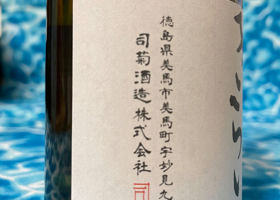 徳島県美馬市美馬町字妙見九
司菊酒造株式会社